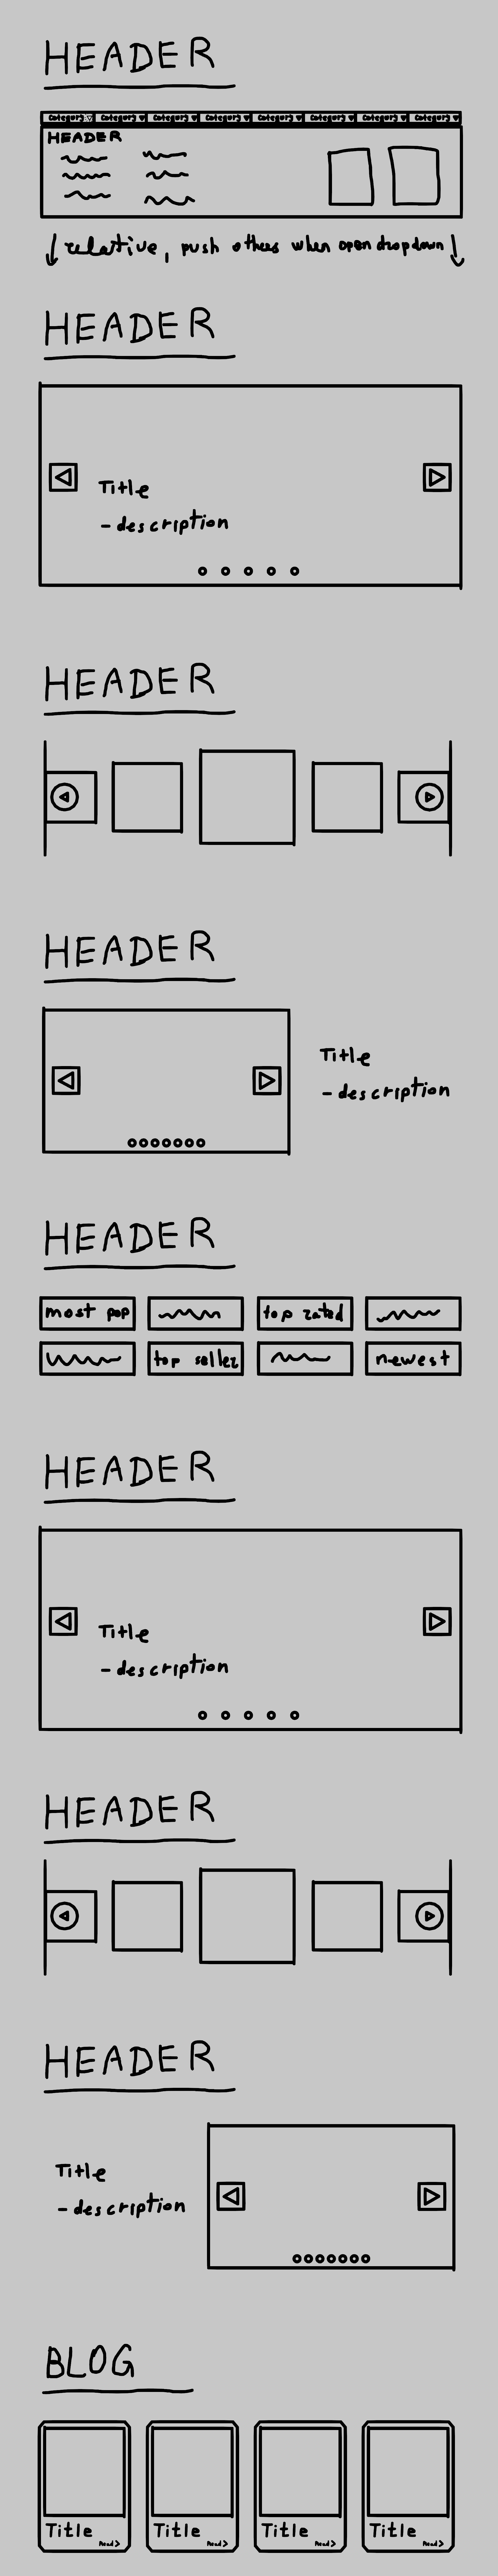 HEADER
Category Category Category Category Category Category Category Category
HEADER
relative, push others when open dropdown
HEADER
Title
- description
HEADER
HEADER
Title
- description
HEADER
most pop top rated
top seller newest
HEADER
Title
- description
HEADER
HEADER
Title
- description
BLOG
Title Title Title Title
Read> Read> Read> Read>